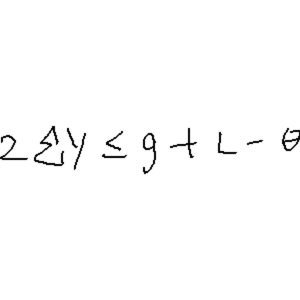 2 ∑ y ≤ g + L - θ